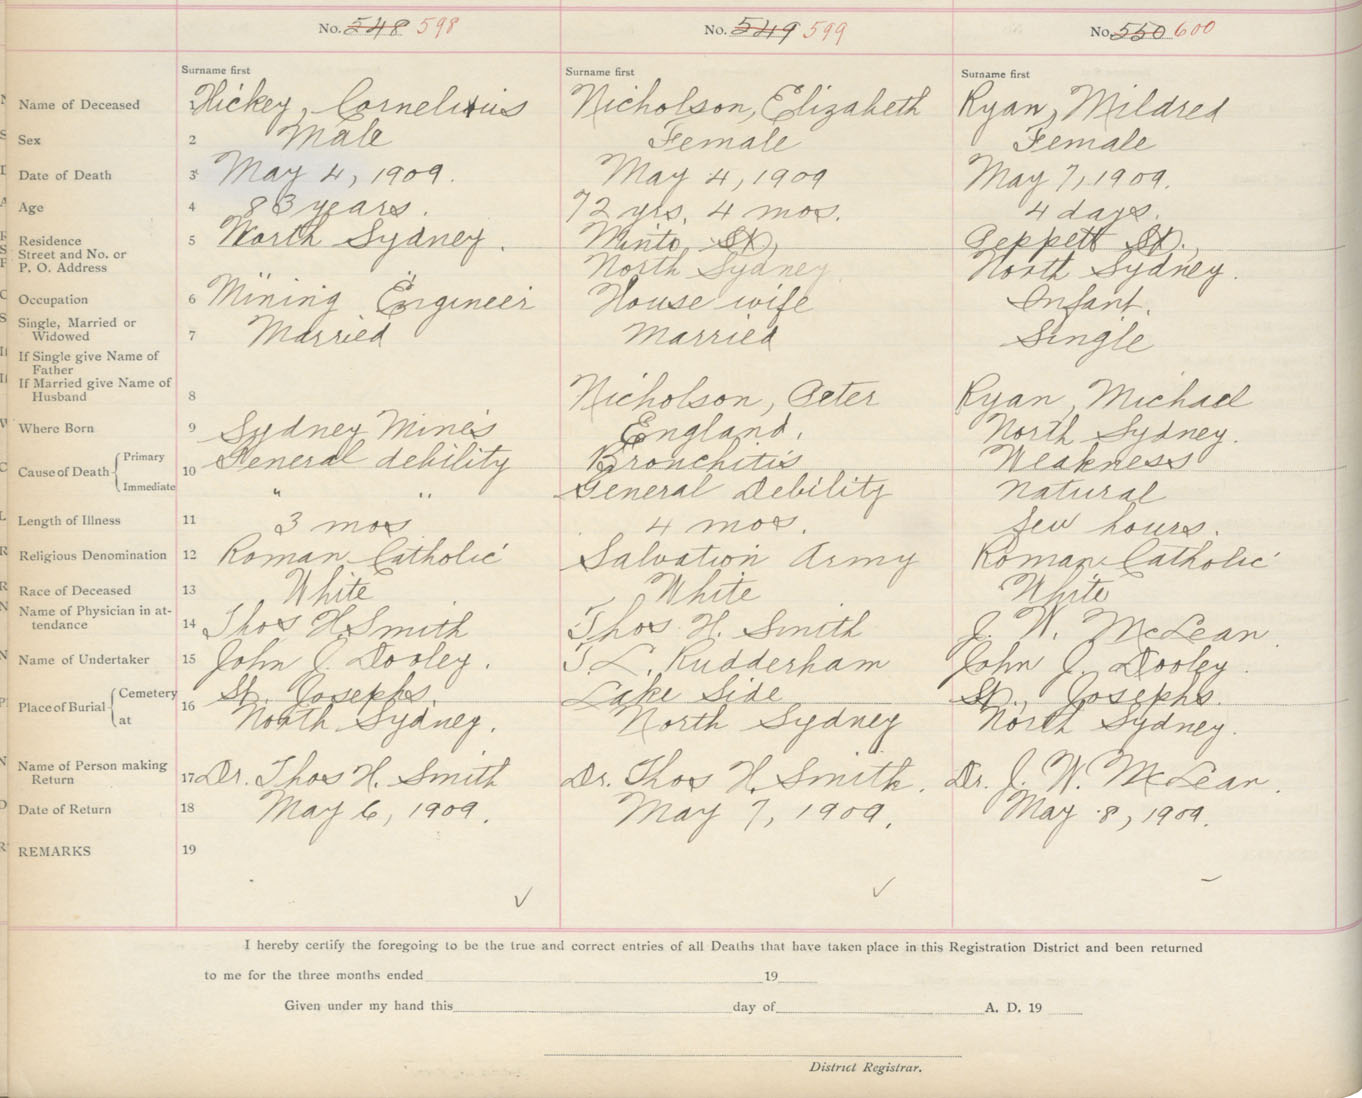 No. 548 598 No. 549 599 No. 550 600
Surname first Surname first Surname first
Name of Deceased 1 Hickey, Cornelius Nicholson, Elizabeth Ryan, Mildred
Sex 2 Male Female Female
Date of Death 3 May 4, 1909. May 4, 1909 May 7, 1909.
Age 4 83 years. 72 yrs. 4 mos. 4 days.
Residence 5 North Sydney. Minto St, Peppett St.,
Street and No. or
P. O. Address North Sydney North Sydney.
Occupation 6 Mining Engineer House wife Infant.
Single, Married or
Widowed 7 Married Married Single
If Single give Name of
Father
If Married give Name of
Husband 8 Nicholson, Peter Ryan, Michael
Where Born 9 Sydney Mines England. North Sydney.
Cause of Death Primary 10 General debility Bronchitis Weakness
Immediate " " General Debility Natural
Length of Illness 11 3 mos 4 mos. few hours.
Religious Denomination 12 Roman Catholic Salvation Army Roman Catholic
Race of Deceased 13 White White White
Name of Physician in at-
tendance 14 Thos H Smith Thos H. Smith J. W. McLean.
Name of Undertaker 15 John J. Dooley. T. L. Rudderham John J. Dooley.
Place of Burial Cemetery 16 St. Josephs. Lake Side St., Josephs.
at North Sydney. North Sydney North Sydney.
Name of Person making
Return 17 Dr. Thos H. Smith Dr. Thos H. Smith. Dr. J. W. McLean.
Date of Return 18 May 6, 1909. May 7, 1909. May 8, 1909.
REMARKS 19
I hereby certify the foregoing to be the true and correct entries of all Deaths that have taken place in this Registration District and been returned
to me for the three months ended 19
Given under my hand this day of A. D. 19
District Registrar.